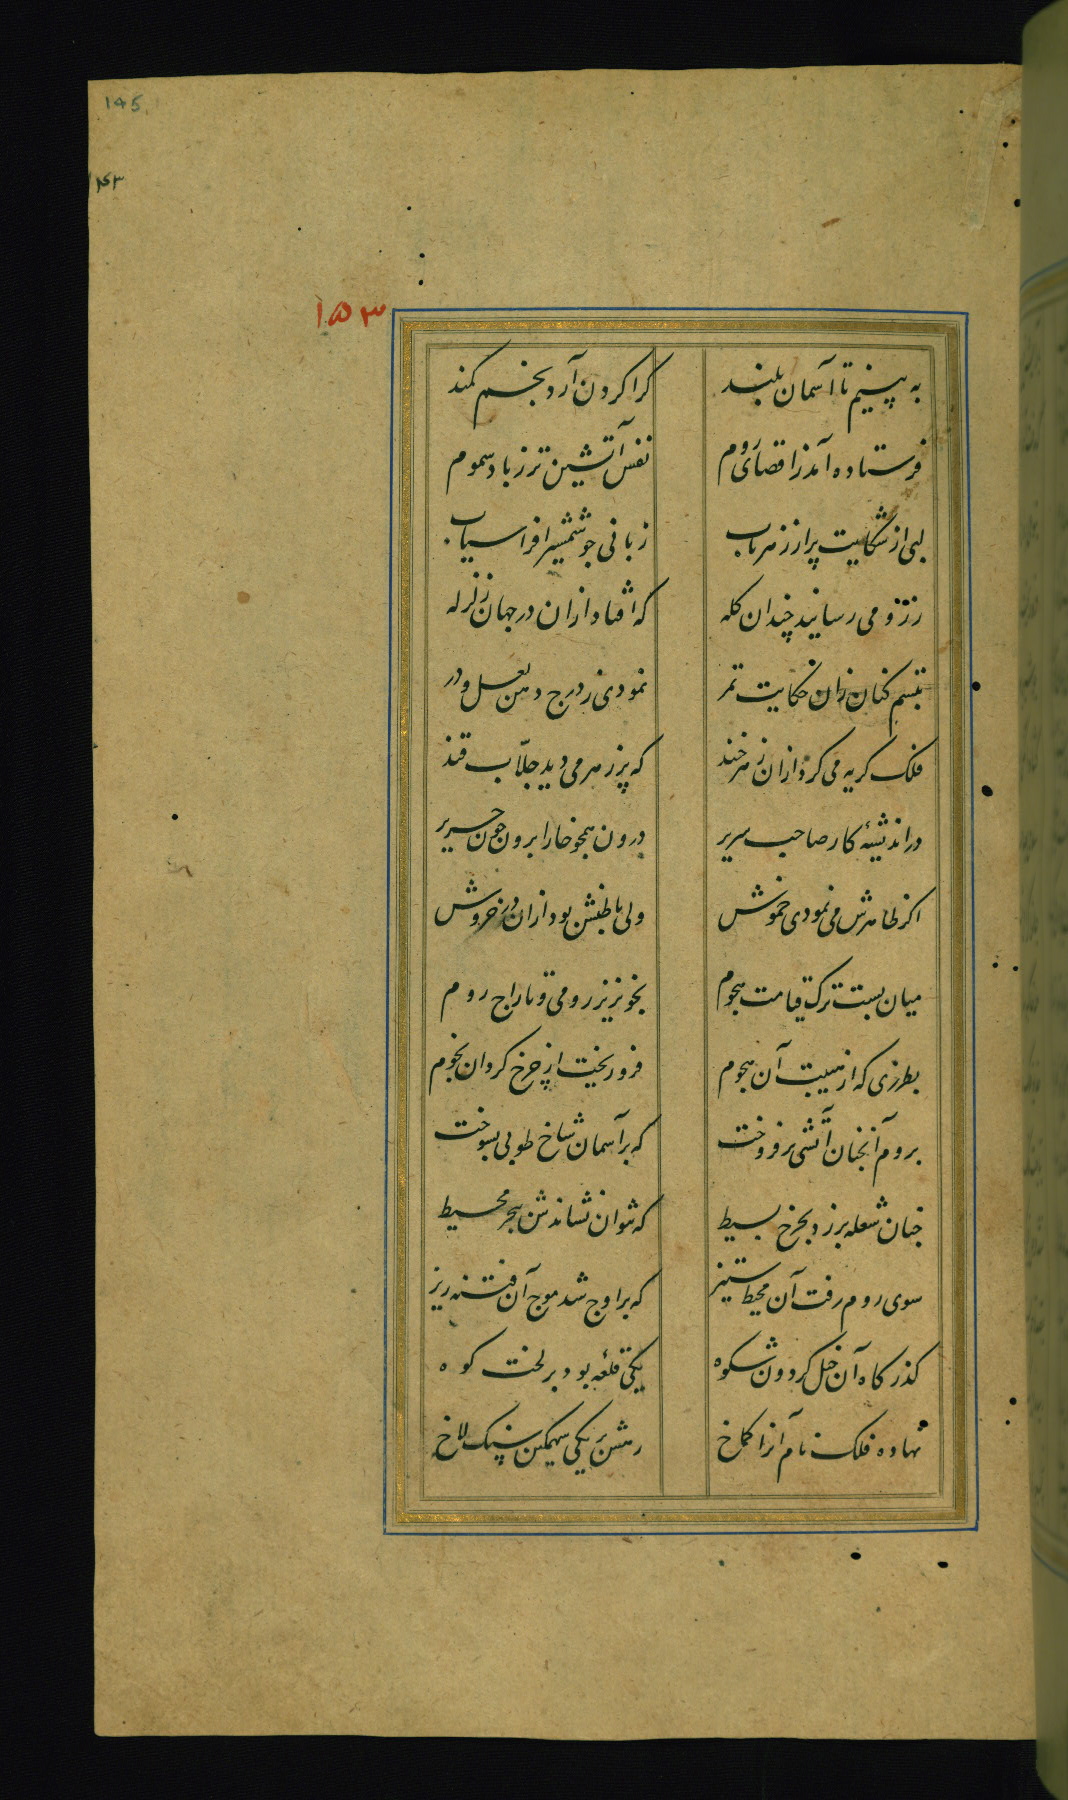 145
۱۵۳
به بینیم تا آسمان بلند کرا کردن آرد بخم کمند
فرستاده آمد ز اقصای روم نفس آتشین تر ز باد سموم
لبی از شکایت پر از زهر ناب زبانی جو شمشیر افراسیاب
ز رومی رسانید چندان کله که افتاد ازان در جهان زلزله
تبسم کنان زان حکایت تمر نمودی ز درج دهن لعل و در
فلک کریه می کرد ازان زهرخند که پر زهر می دید جلّاب قند
در اندیشهٔ کار صاحب سریر درون همجو خارا برون جون حریر
اکر ظاهرش می نمودی خموش ولی باطنش بود ازان در خروش
میان بست ترک قیامت هجوم بخونریز رومی و تاراج روم
بطرزی که از هیبت آن هجوم فرو ریخت از چرخ کردان نجوم
بروم آنجنان آتشی برفروخت که بر آسمان شاخ طوبی بسوخت
جنان شعله بر زد بجرخ بسیط که نتوان نشاندش ببحر محیط
سوی روم رفت آن محیط ستیز که بر اوج شد موج آن فتنه ریز
کذرکاه آن خیل کردون شکوه یکی قلعه بود بر لخت کوه
نهاده فلک نام آنرا کماخ رهش بر یکی سهمکین سنک لاخ